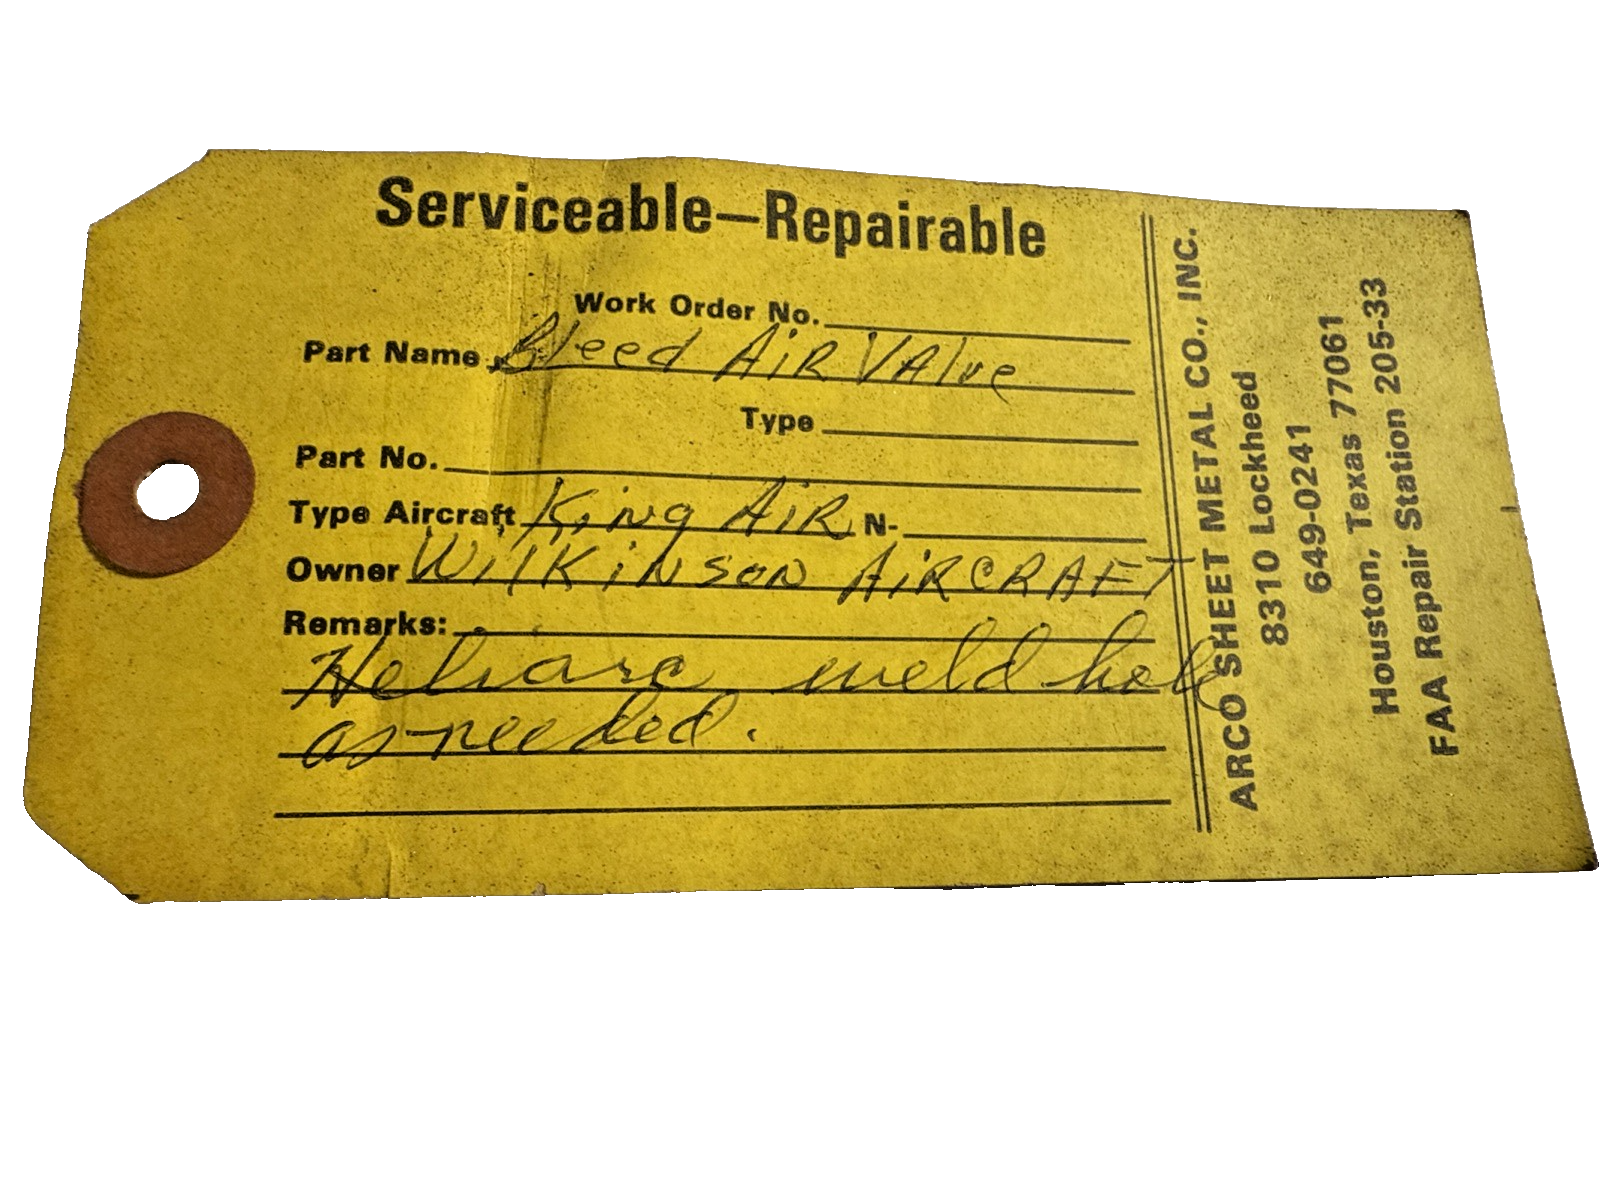 Serviceable—Repairable
Work Order No.
Part Name Bleed AiR VAlve
Type
Part No.
Type Aircraft King AiR N-
Owner WilKiNSON AiRCRAFT
Remarks:
Heliarc weld hole
as needed.
ARCO SHEET METAL CO., INC.
8310 Lockheed
649-0241
Houston, Texas 77061
FAA Repair Station 205-33